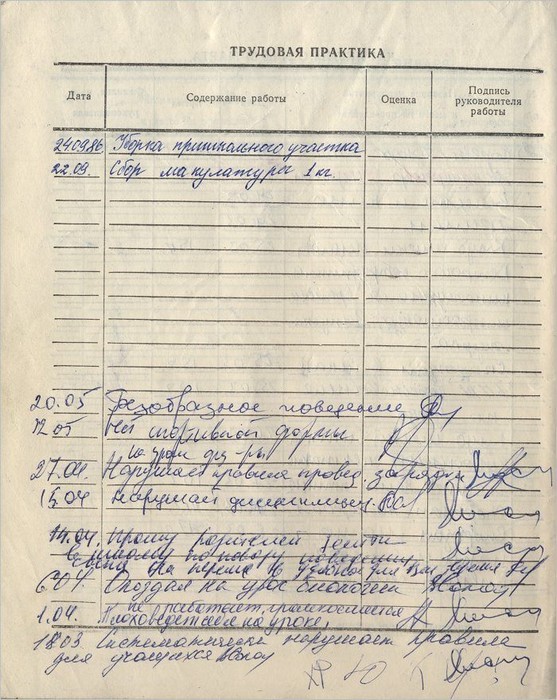 ТРУДОВАЯ ПРАКТИКА
Дата Содержание работы Оценка Подпись руководителя работы
24.09.86 Уборка пришкольного участка
22.09. Сбор макулатуры 1 кг.
20.05 Безобразное поведение
12 05 Нет спортивной формы
на урок физ-ры
27.04. Нарушает правила провед. зарядки
15 04 Нарушает дисциплину.
14.04. Прошу родителей зайти
в школу по поводу поведения
6.04. Опоздал на урок биологии
не работает, занимается
1.04. Плохо ведет себя на уроке,
18.03 Систематически нарушает правила
для учащихся